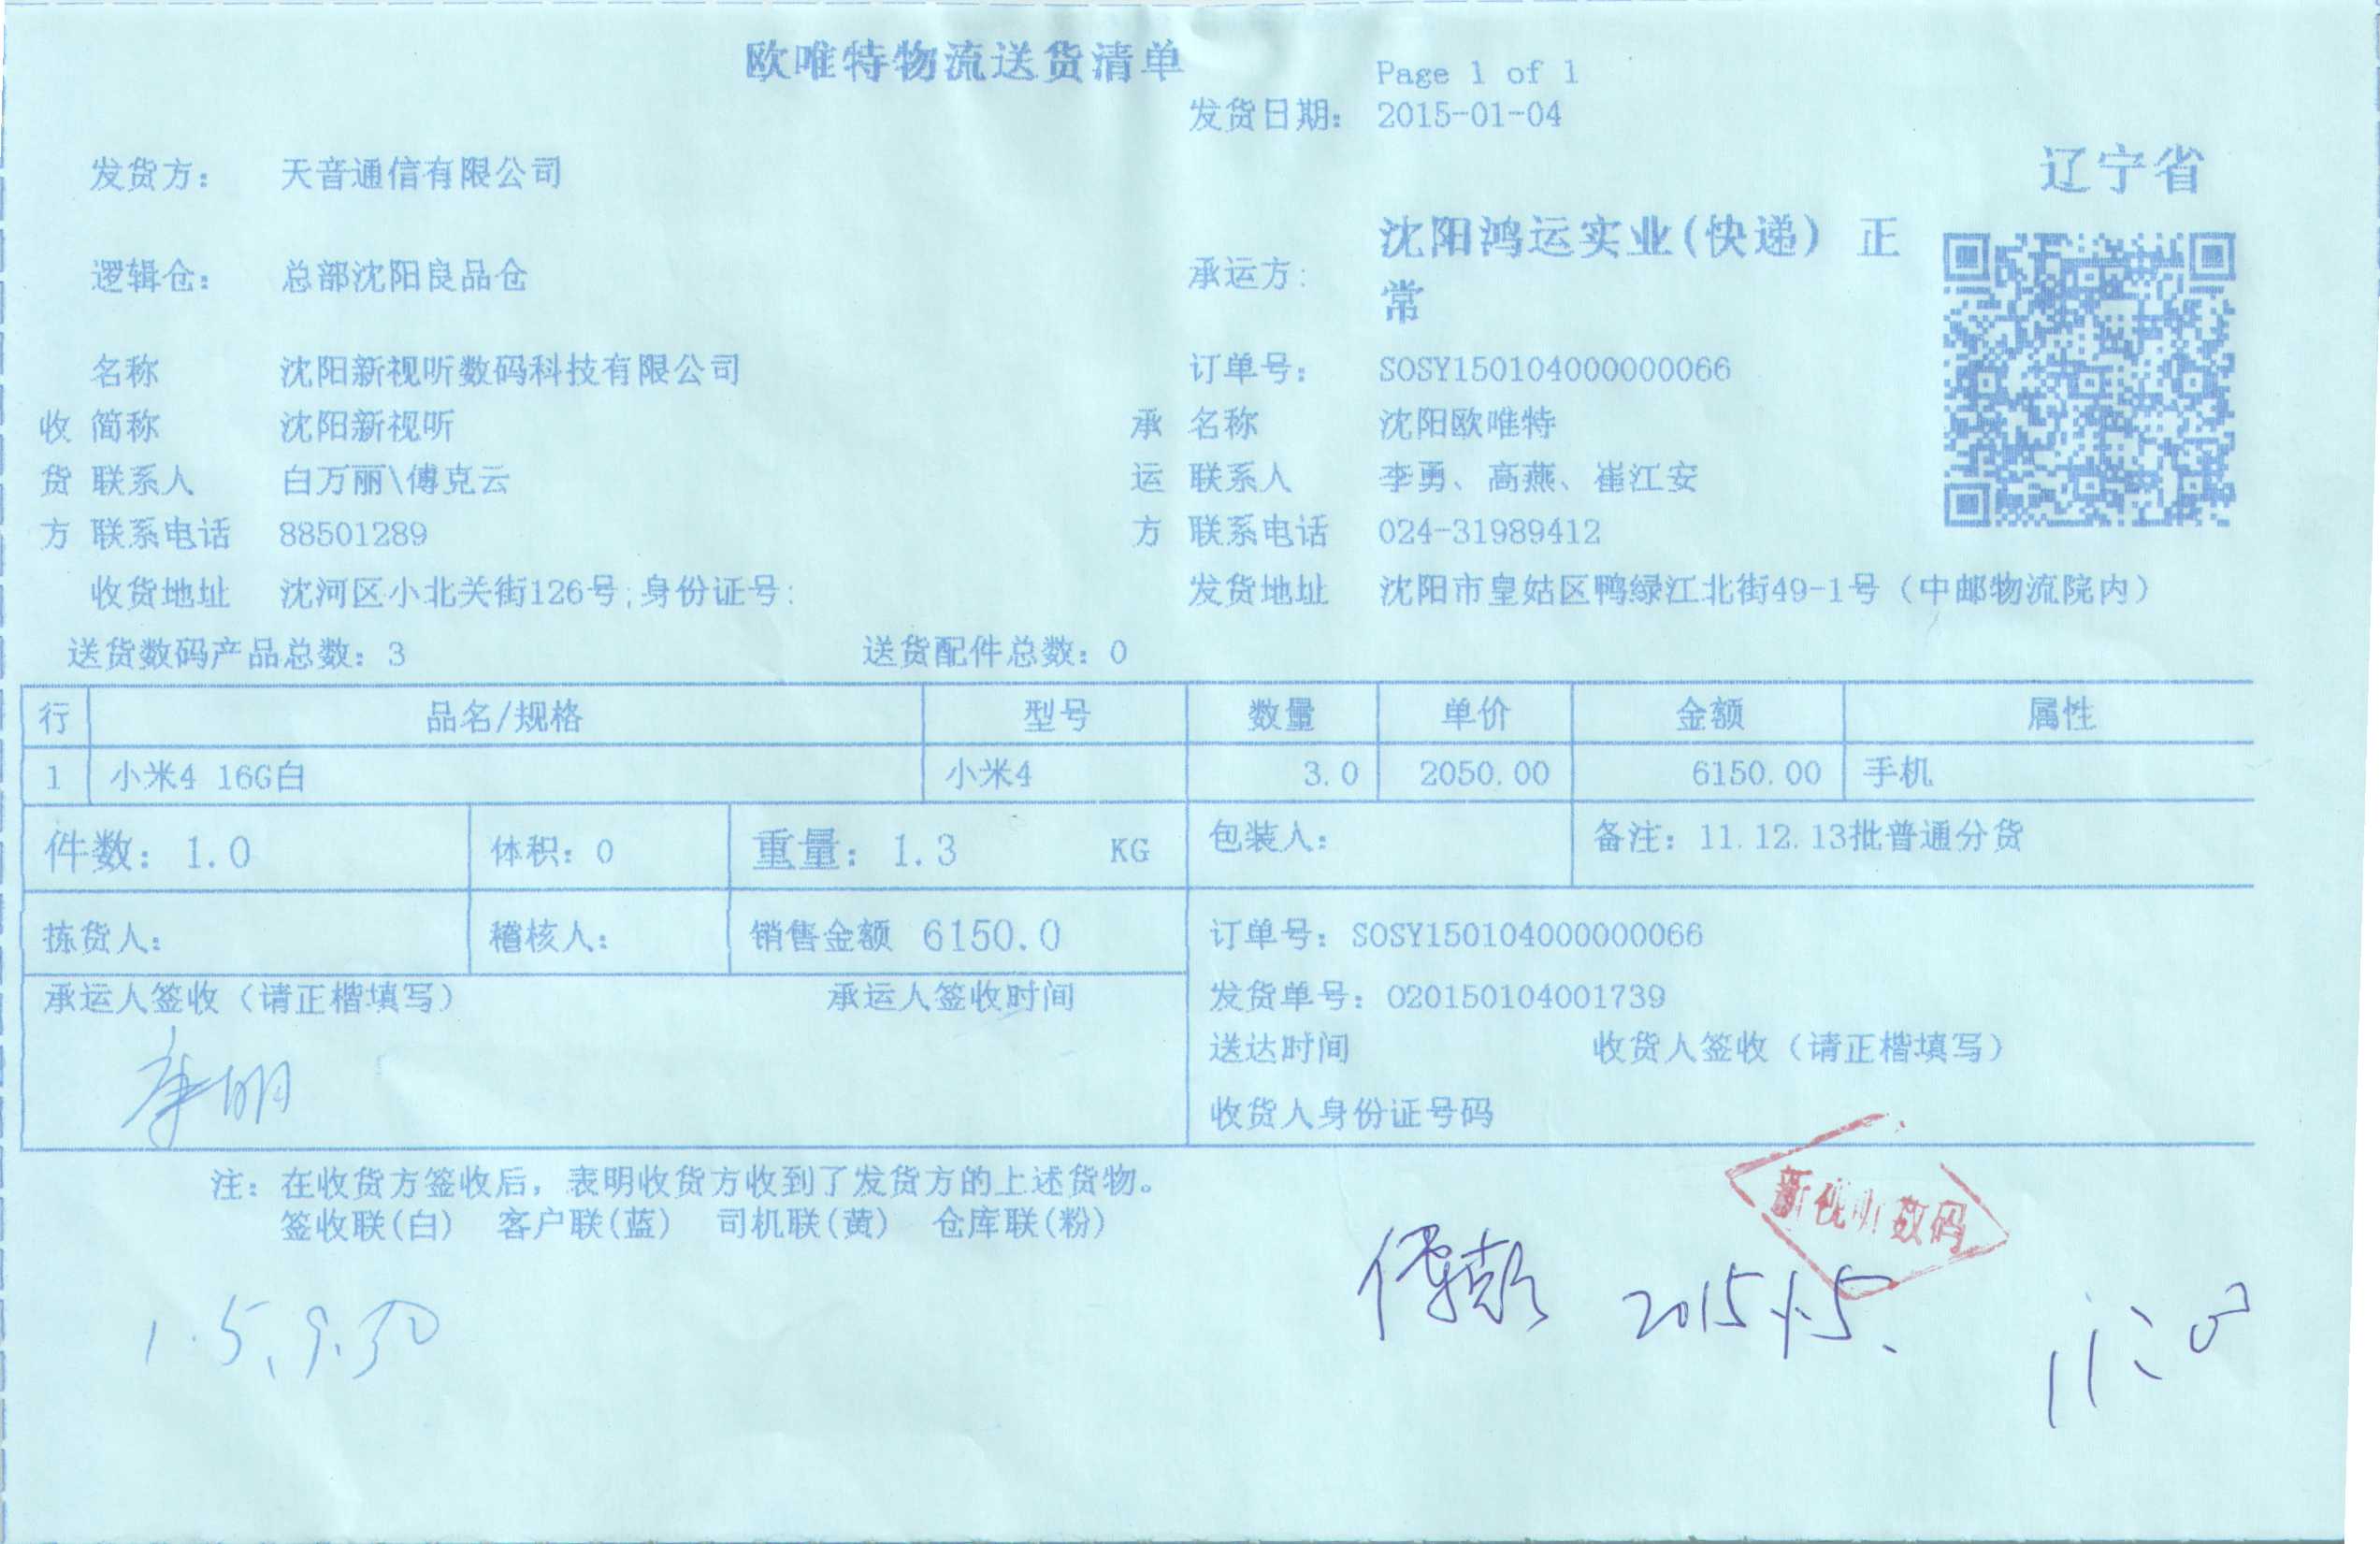 欧唯特物流送货清单
Page 1 of 1
发货日期: 2015-01-04
辽宁省
发货方: 天音通信有限公司
逻辑仓: 总部沈阳良品仓
承运方: 沈阳鸿运实业(快递) 正
常
名称 沈阳新视听数码科技有限公司 订单号: SOSY150104000000066
收 简称 沈阳新视听 承 名称 沈阳欧唯特
货 联系人 白万丽\傅克云 运 联系人 李勇、高燕、崔江安
方 联系电话 88501289 方 联系电话 024-31989412
收货地址 沈河区小北关街126号;身份证号: 发货地址 沈阳市皇姑区鸭绿江北街49-1号（中邮物流院内）
送货数码产品总数: 3 送货配件总数: 0
行 品名/规格 型号 数量 单价 金额 属性
1 小米4 16G白 小米4 3.0 2050.00 6150.00 手机
件数: 1.0 体积: 0 重量: 1.3 KG 包装人: 备注: 11.12.13批普通分货
拣货人: 稽核人: 销售金额 6150.0 订单号: SOSY150104000000066
承运人签收（请正楷填写） 承运人签收时间 发货单号: O20150104001739
送达时间 收货人签收（请正楷填写）
收货人身份证号码
注: 在收货方签收后，表明收货方收到了发货方的上述货物。
签收联(白) 客户联(蓝) 司机联(黄) 仓库联(粉)
新视听数码
1.5、9.50
2015.1.5.